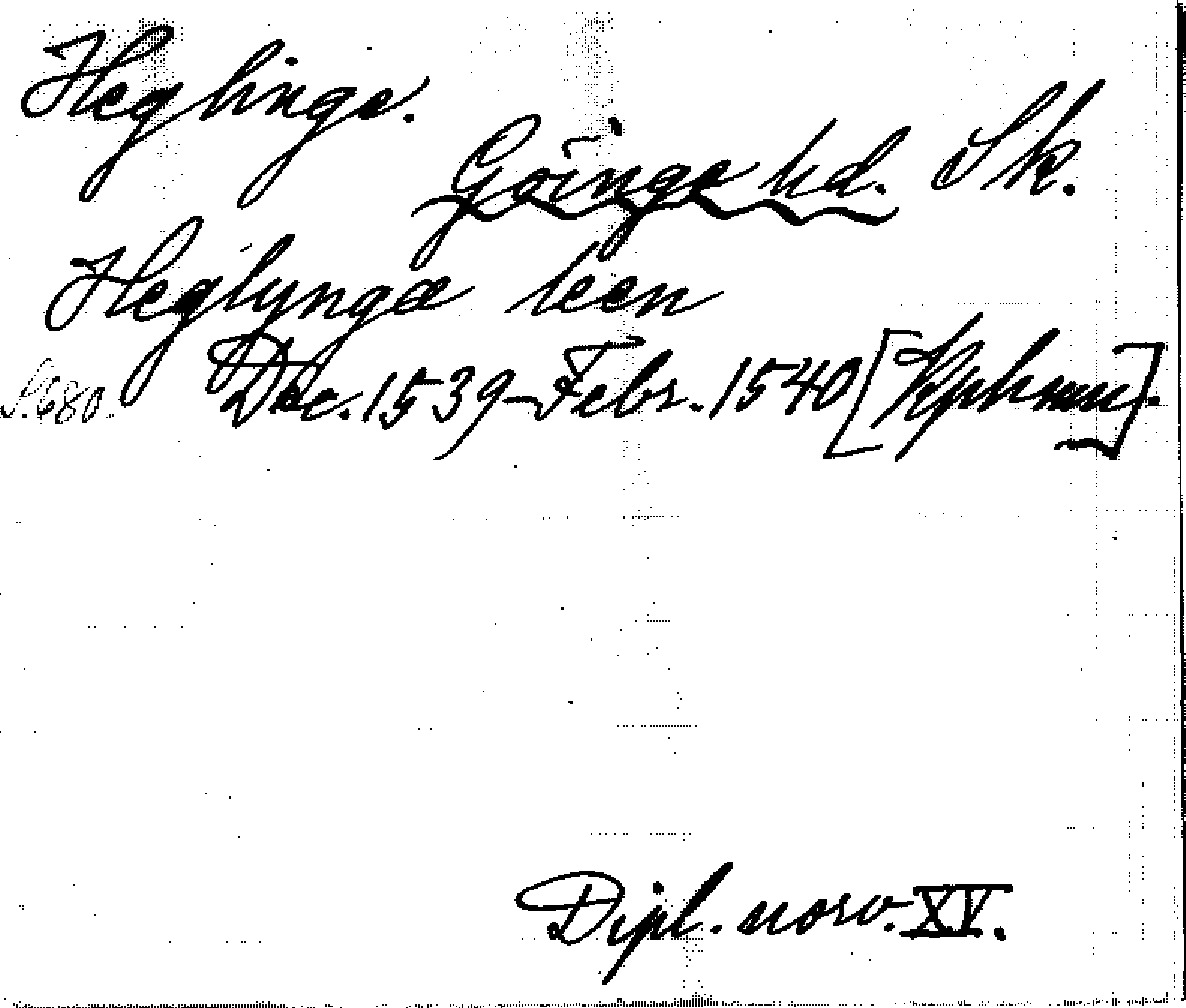 Heglinge.
Göinge hd. Sk.
Heglyngæ leen
S. 680. Dec. 1539–Febr. 1540 [Kphmn].
Dipl. norv. XV.